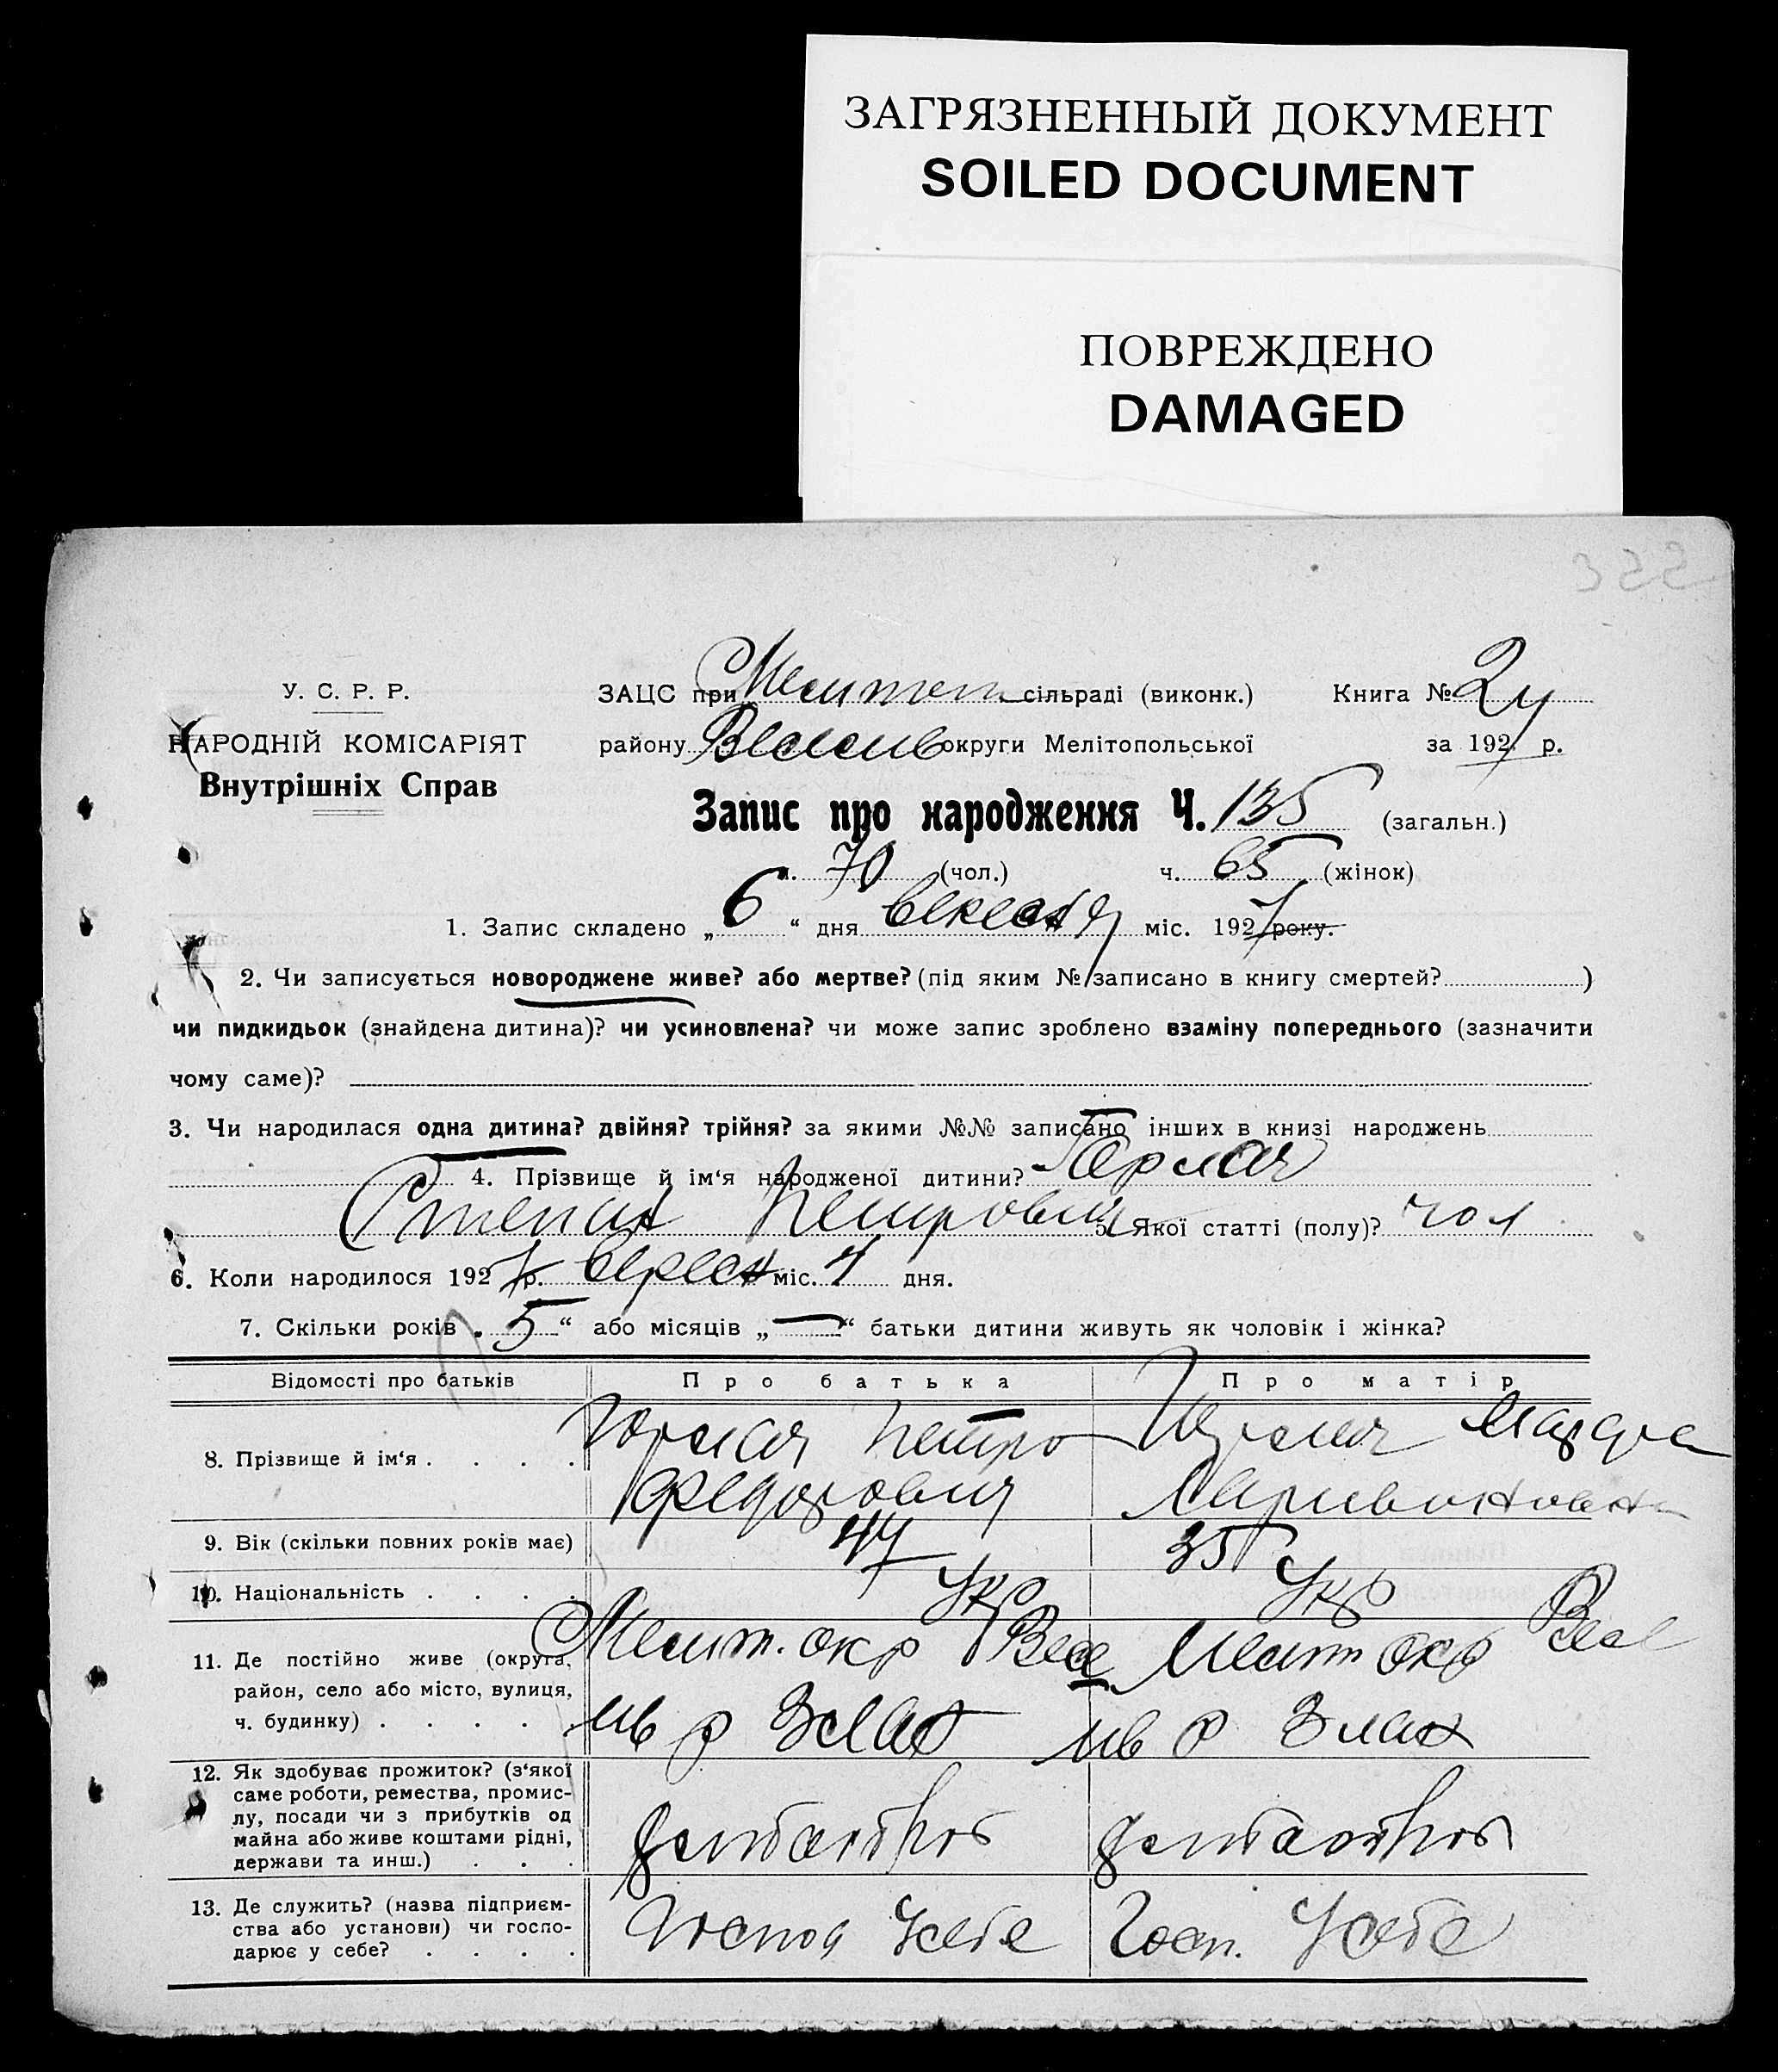 ЗАГРЯЗНЕННЫЙ ДОКУМЕНТ
SOILED DOCUMENT
ПОВРЕЖДЕНО
DAMAGED
У. С. Р. Р.
НАРОДНІЙ КОМІСАРІЯТ
Внутрішніх Справ
ЗАЦС при сільраді (виконк.) Книга №
району округи Мелітопольської за 1927 р.
Запис про народження Ч. 135 (загальн.)
ч. 70 (чол.) ч. 65 (жінок)
1. Запис складено „ 6 “ дня вересня міс. 1927 року.
2. Чи записується новороджене живе? або мертве? (під яким № записано в книгу смертей? )
чи пидкидьок (знайдена дитина)? чи усиновлена? чи може запис зроблено взаміну попереднього (зазначити
чому саме)?
3. Чи народилася одна дитина? двійня? трійня? за якими №№ записано інших в книзі народжень
4. Прізвище й ім‘я народженої дитини?
Степан Петрович 5. Якої статті (полу)? чол
6. Коли народилося 1927 р. вересн міс. 4 дня.
7. Скільки років „ 5 “ або місяців „ — “ батьки дитини живуть як чоловік і жінка?
Відомості про батьків Про батька Про матір
8. Прізвище й ім‘я . . . . Петро
Федорович
9. Вік (скільки повних років має) 47 35
10. Національність . . . . Укр Укр
11. Де постійно живе (округа, Мелит. окр Весе Мелит окр Весе
район, село або місто, вулиця,
ч. будинку) . . . . лів р лів р
12. Як здобуває прожиток? (з‘якої
саме роботи, ремества, промис-
лу, посади чи з прибутків од
майна або живе коштами рідні,
держави та инш.) . . .
13. Де служить? (назва підприєм-
ства або установи) чи госпо- Господ Усебе Госп. Усебе
дарює у себе? . . . .